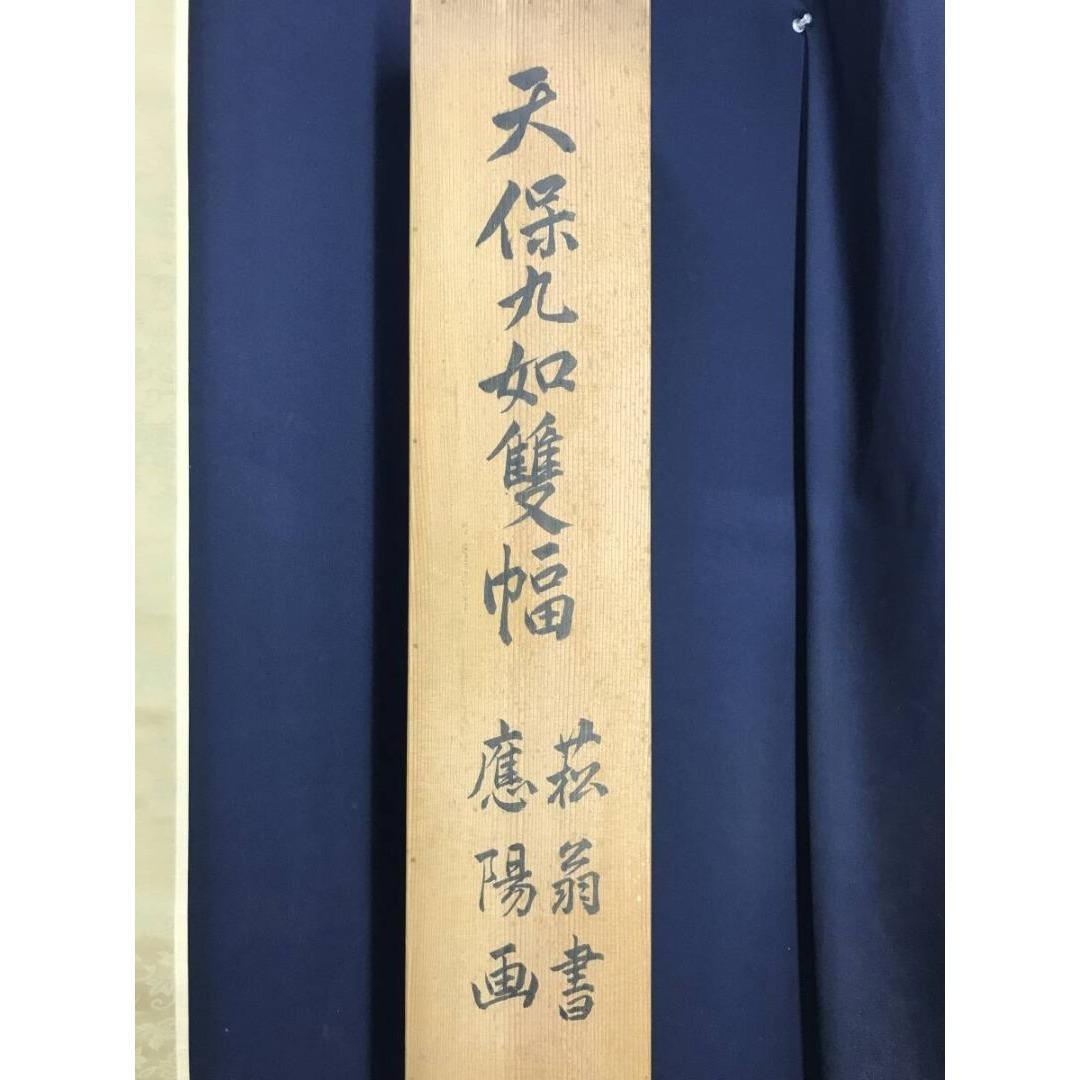 天保九如雙幅
菘翁書
應陽画